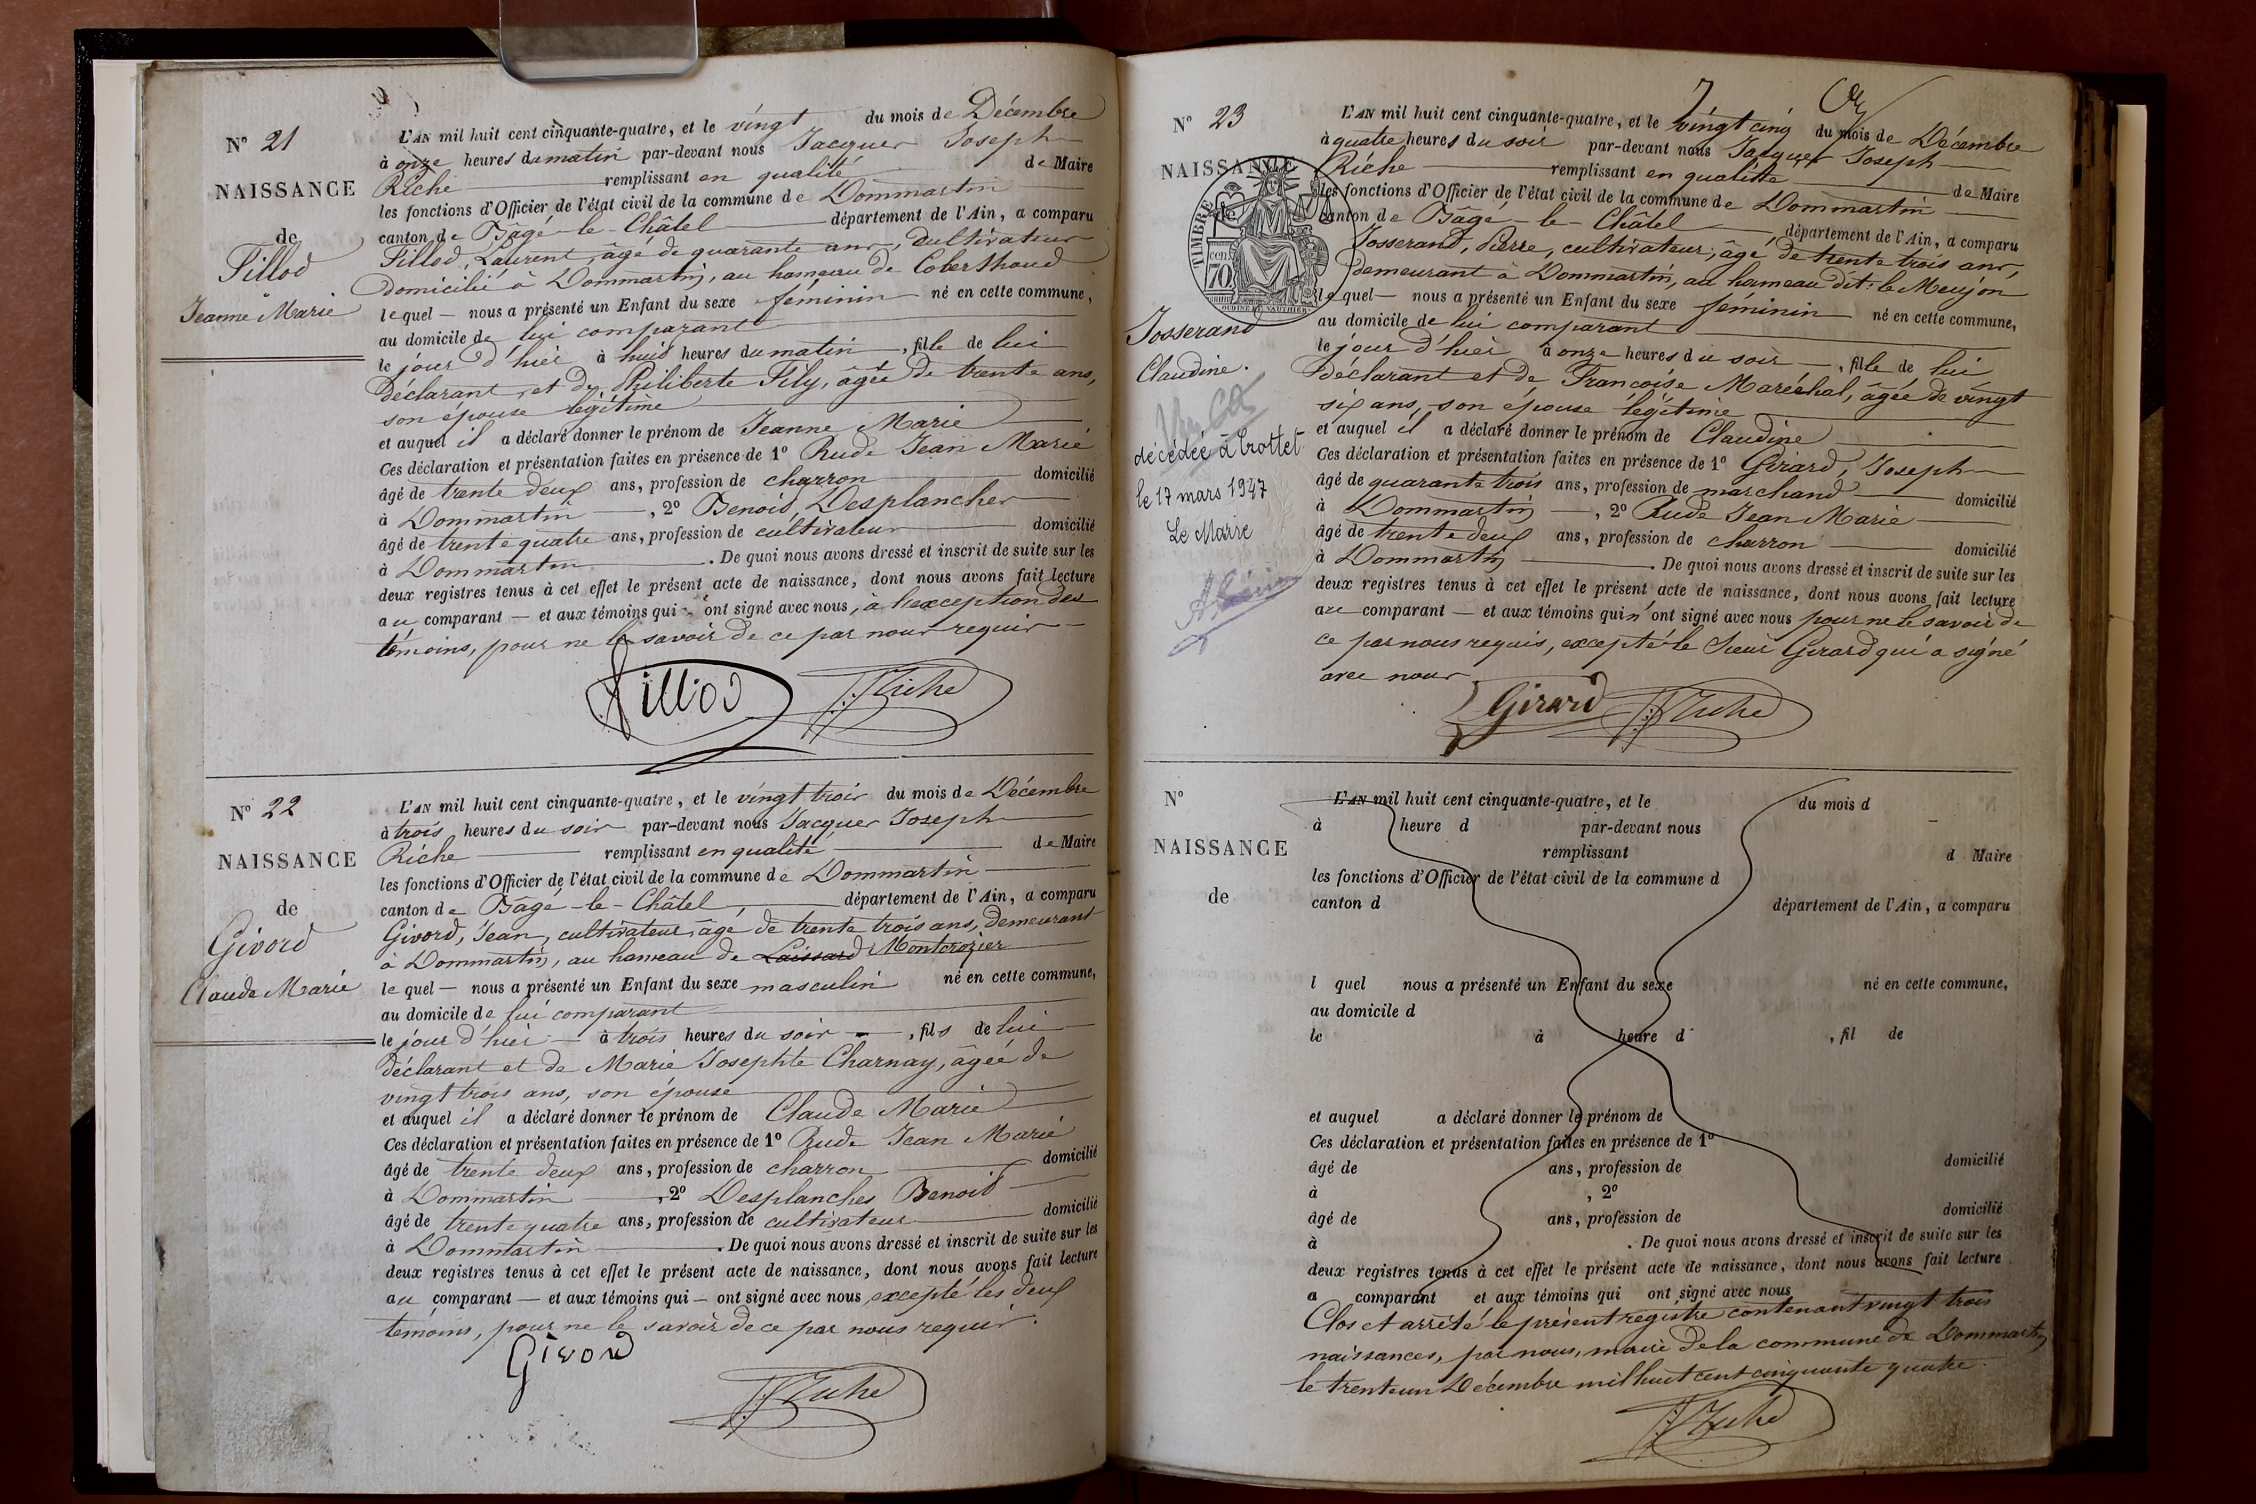 N° 21
NAISSANCE
de
Fillod
Jeanne Marie
L'AN mil huit cent cinquante-quatre, et le vingt du mois de Décembre
à onze heures du matin par-devant nous Jacques Joseph
Riche remplissant en qualité de Maire
les fonctions d'Officier de l'état civil de la commune de Dommartin
canton de Bâgé-le-Châtel département de l'Ain, a comparu
Fillod, Laurent, âgé de quarante ans, Cultivateur
domicilié à Dommartin, au hameau de
lequel nous a présenté un Enfant du sexe féminin né en cette commune,
au domicile de lui comparant
le jour d'hier à huit heures du matin, fille de lui
déclarant, et de Philiberte Fily, âgée de trente ans,
son épouse légitime
et auquel il a déclaré donner le prénom de Jeanne Marie
Ces déclaration et présentation faites en présence de 1° Rude Jean Marie
âgé de trente deux ans, profession de charron domicilié
à Dommartin, 2° Benoid, Desplanches
âgé de trente quatre ans, profession de cultivateur domicilié
à Dommartin. De quoi nous avons dressé et inscrit de suite sur les
deux registres tenus à cet effet le présent acte de naissance, dont nous avons fait lecture
au comparant et aux témoins qui ont signé avec nous, à l'exception des
témoins, pour ne le savoir de ce par nous requis
Filliod JJRiche
N° 22
NAISSANCE
de
Givord
Claude Marie
L'AN mil huit cent cinquante-quatre, et le vingt trois du mois de Décembre
à trois heures du soir par-devant nous Jacques Joseph
Riche remplissant en qualité de Maire
les fonctions d'Officier de l'état civil de la commune de Dommartin
canton de Bâgé-le-Châtel, département de l'Ain, a comparu
Givord, Jean, cultivateur, âgé de trente trois ans, demeurant
à Dommartin, au hameau de Laissard Montcrozier
lequel nous a présenté un Enfant du sexe masculin né en cette commune,
au domicile de lui comparant
le jour d'hier à trois heures du soir, fils de lui
déclarant et de Marie Josephte Charnay, âgée de
vingt trois ans, son épouse
et auquel il a déclaré donner le prénom de Claude Marie
Ces déclaration et présentation faites en présence de 1° Rude Jean Marie
âgé de trente deux ans, profession de charron domicilié
à Dommartin, 2° Desplanches Benoid
âgé de trente quatre ans, profession de cultivateur domicilié
à Dommartin. De quoi nous avons dressé et inscrit de suite sur les
deux registres tenus à cet effet le présent acte de naissance, dont nous avons fait lecture
au comparant et aux témoins qui ont signé avec nous, excepté les deux
témoins, pour ne le savoir de ce par nous requis.
Givord
JJRiche
N° 23
NAISSANCE
TIMBRE
cen
70
OUDINÉ ET VAUTHIER
Josserand
Claudine.
décédée à Crottet
le 17 mars 1947
Le Maire
L'AN mil huit cent cinquante-quatre, et le vingt cinq du mois de Décembre
à quatre heures du soir par-devant nous Jacques Joseph
Riche remplissant en qualité de Maire
les fonctions d'Officier de l'état civil de la commune de Dommartin
canton de Bâgé-le-Châtel, département de l'Ain, a comparu
Josserand, Pierre, cultivateur, âgé de trente trois ans,
demeurant à Dommartin, au hameau dit: le Meujon
lequel nous a présenté un Enfant du sexe féminin né en cette commune,
au domicile de lui comparant
le jour d'hier à onze heures du soir, fille de lui
déclarant et de Françoise Maréchal, âgée de vingt
six ans, son épouse légitime
et auquel il a déclaré donner le prénom de Claudine
Ces déclaration et présentation faites en présence de 1° Girard, Joseph
âgé de quarante trois ans, profession de marchand domicilié
à Dommartin, 2° Rude Jean Marie
âgé de trente deux ans, profession de charron domicilié
à Dommartin. De quoi nous avons dressé et inscrit de suite sur les
deux registres tenus à cet effet le présent acte de naissance, dont nous avons fait lecture
au comparant et aux témoins qui n'ont signé avec nous pour ne le savoir de
ce par nous requis, excepté le Sieur Girard qui a signé
avec nous
Girard JJRiche
N°
NAISSANCE
de
L'AN mil huit cent cinquante-quatre, et le du mois d
à heure d par-devant nous
remplissant d Maire
les fonctions d'Officier de l'état civil de la commune d
canton d département de l'Ain, a comparu
l quel nous a présenté un Enfant du sexe né en cette commune,
au domicile d
le à heure d , fil de
et auquel a déclaré donner le prénom de
Ces déclaration et présentation faites en présence de 1°
âgé de ans, profession de domicilié
à , 2°
âgé de ans, profession de domicilié
à . De quoi nous avons dressé et inscrit de suite sur les
deux registres tenus à cet effet le présent acte de naissance, dont nous avons fait lecture
a comparant et aux témoins qui ont signé avec nous
Clos et arrêté le présent registre contenant vingt trois
naissances, par nous, maire de la commune de Dommartin
le trente un Décembre mil huit cent cinquante quatre.
JJRiche